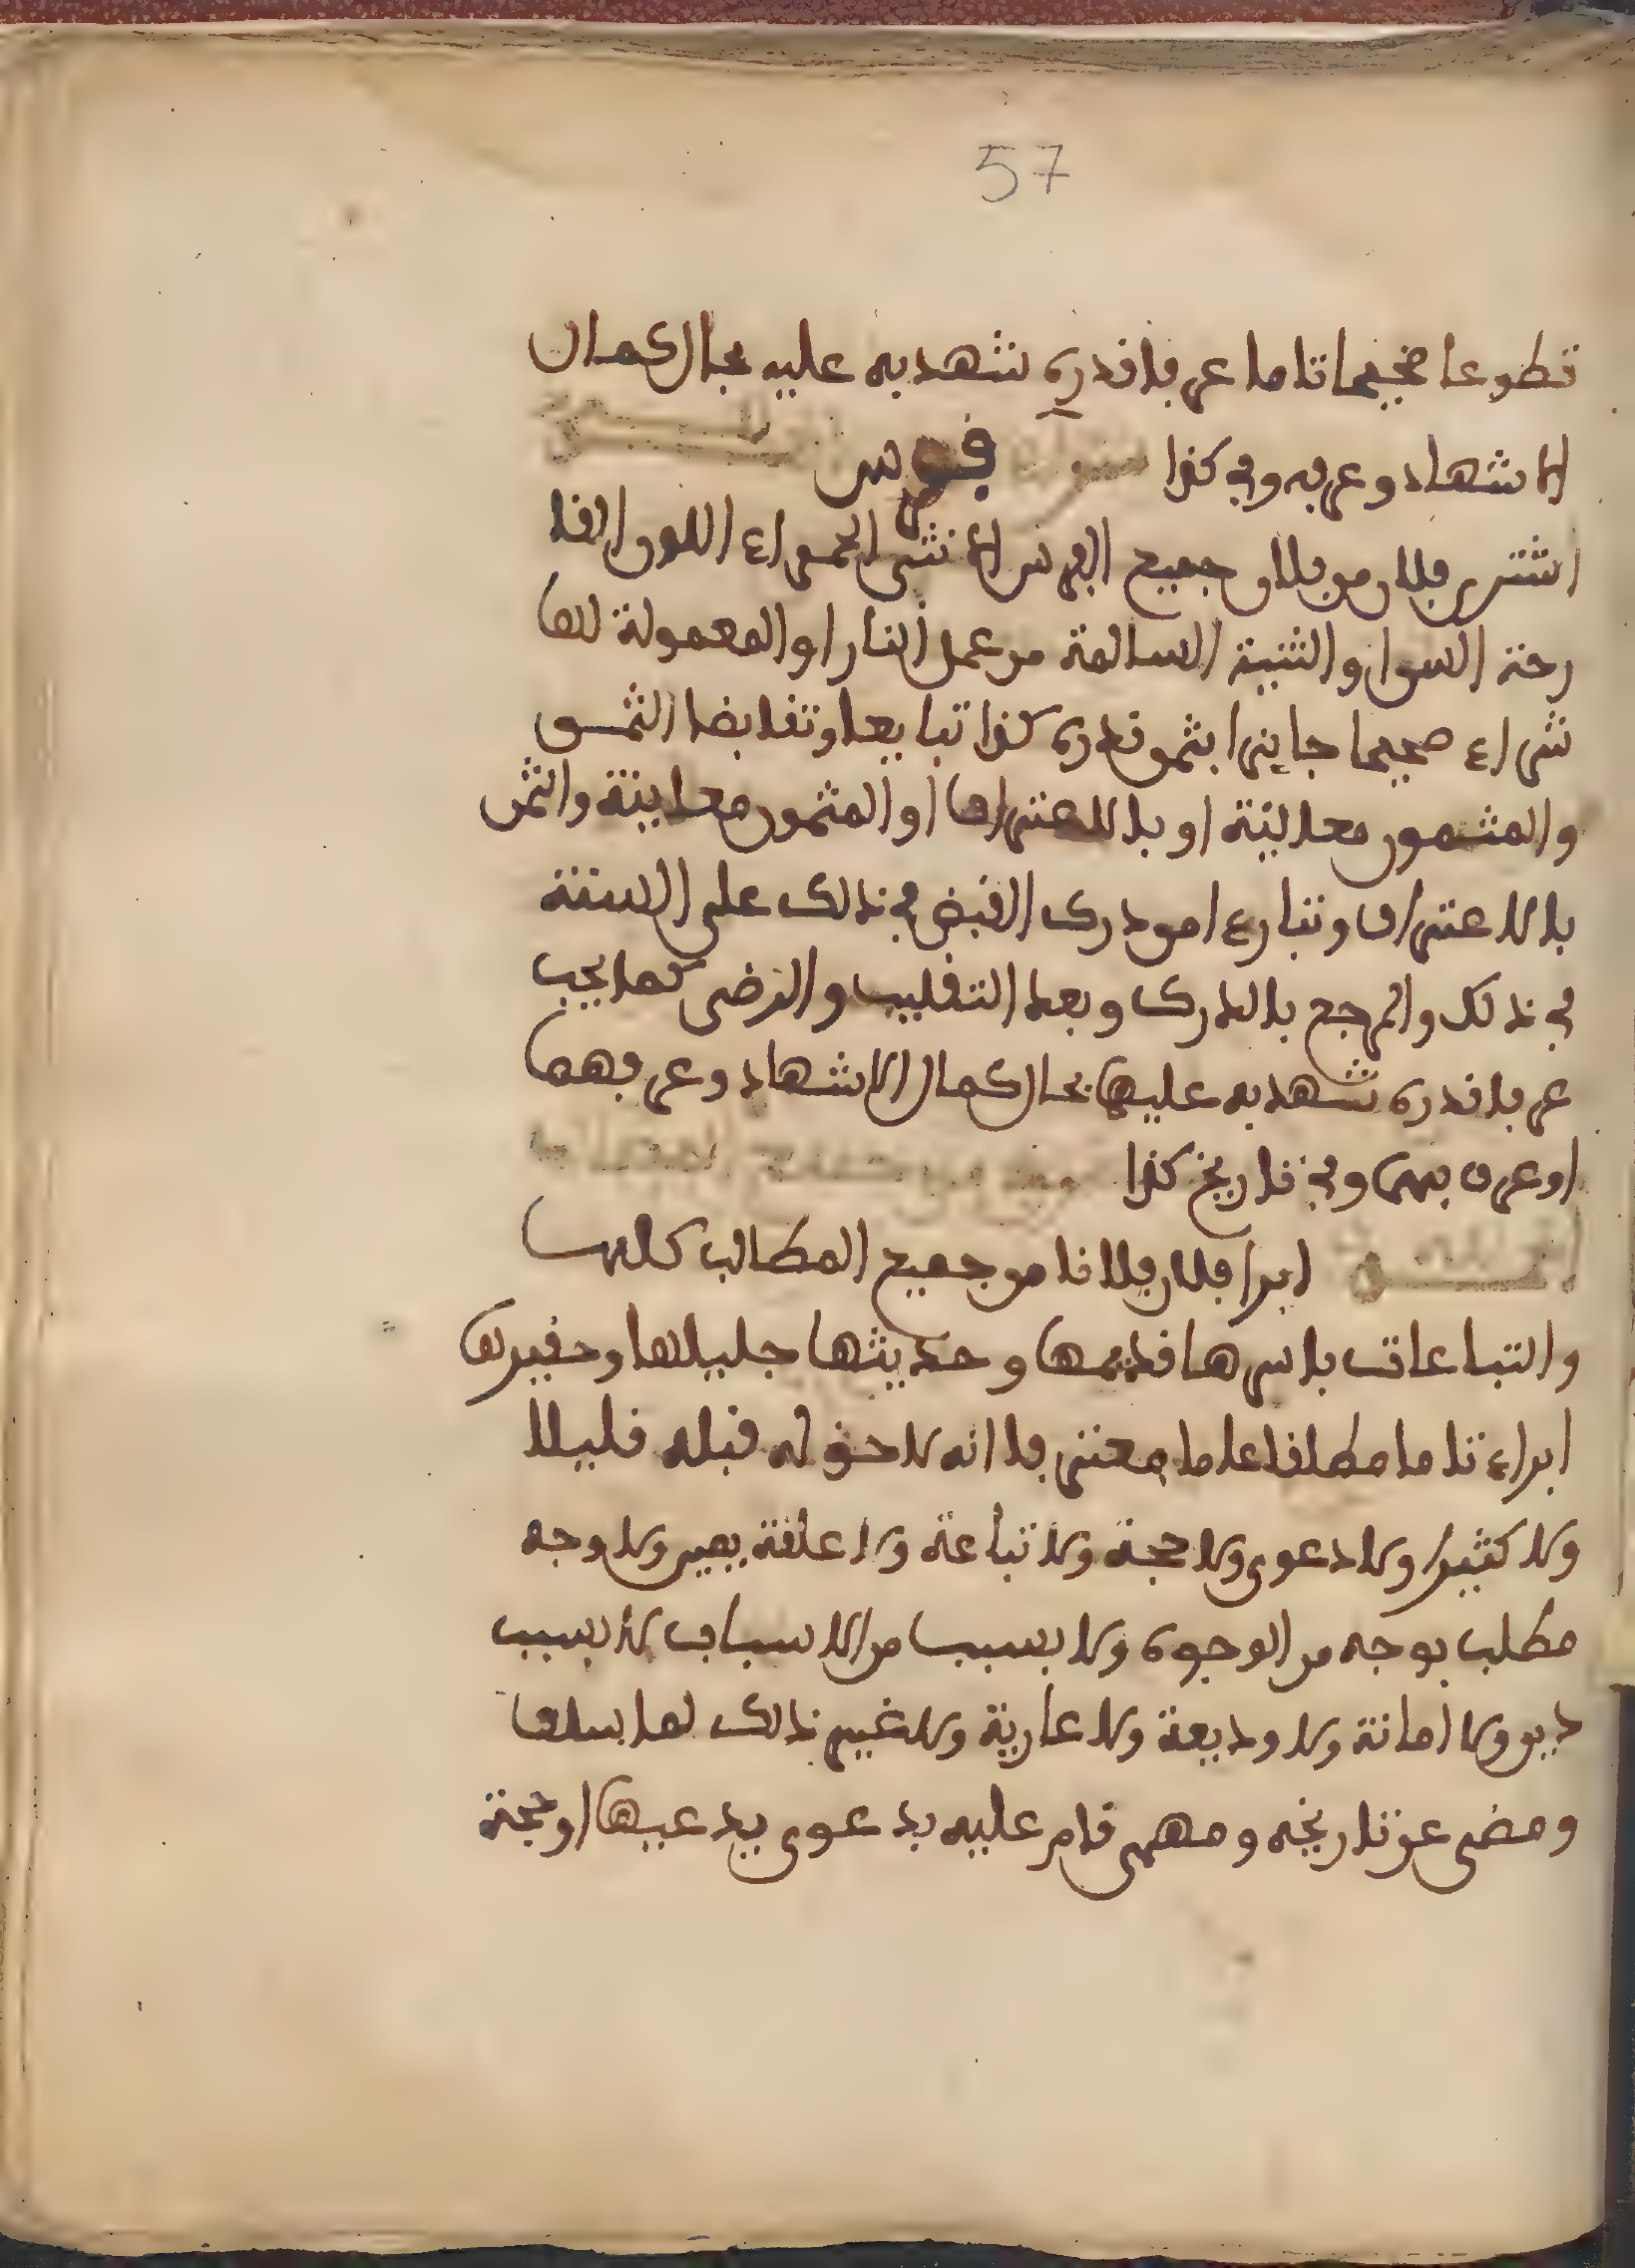 57
تطوعا صحيحا تاما عرفا قدره شهد به عليه بحال كمال
الاشهاد وعرفه وفي كذا فرس
اشترى فلان من فلان جميع الفرس الانثى الحمراء اللون القا
رحة السن او الثنية السالمة من عمل النار او المعمولة لها
شراء صحيحا جايزا بثمن قدره كذا تبايعا وتقابضا الثمن
والمثمون معاينة او بالاعتراف او المثمون معاينة والثمن
بالاعتراف وتبارءا من درك القبض في ذلك على السنة
في ذلك والمرجع بالدرك وبعد التقليب والرضى كما يجب
عرفا قدره شهد به عليهما بحال كمال الاشهاد وعرفهما
او عرف بهما وفي تاريخ كذا
ابرا فلان فلانا من جميع المطالب كلها
والتباعات باسرها قديمها وحديثها جليلها وحقيرها
ابراء تاما مطلقا عاما معترفا انه لا حق له قبله قليلا
ولا كثيرا ولا دعوى ولا حجة ولا تباعة ولا علقة يمين ولا وجه
مطلب بوجه من الوجوه ولا بسبب من الاسباب لا بسبب
دين ولا امانة ولا وديعة ولا عارية ولا غير ذلك لما سلف
ومضى عن تاريخه ومهمى قام عليه بدعوى يدعيها او حجة